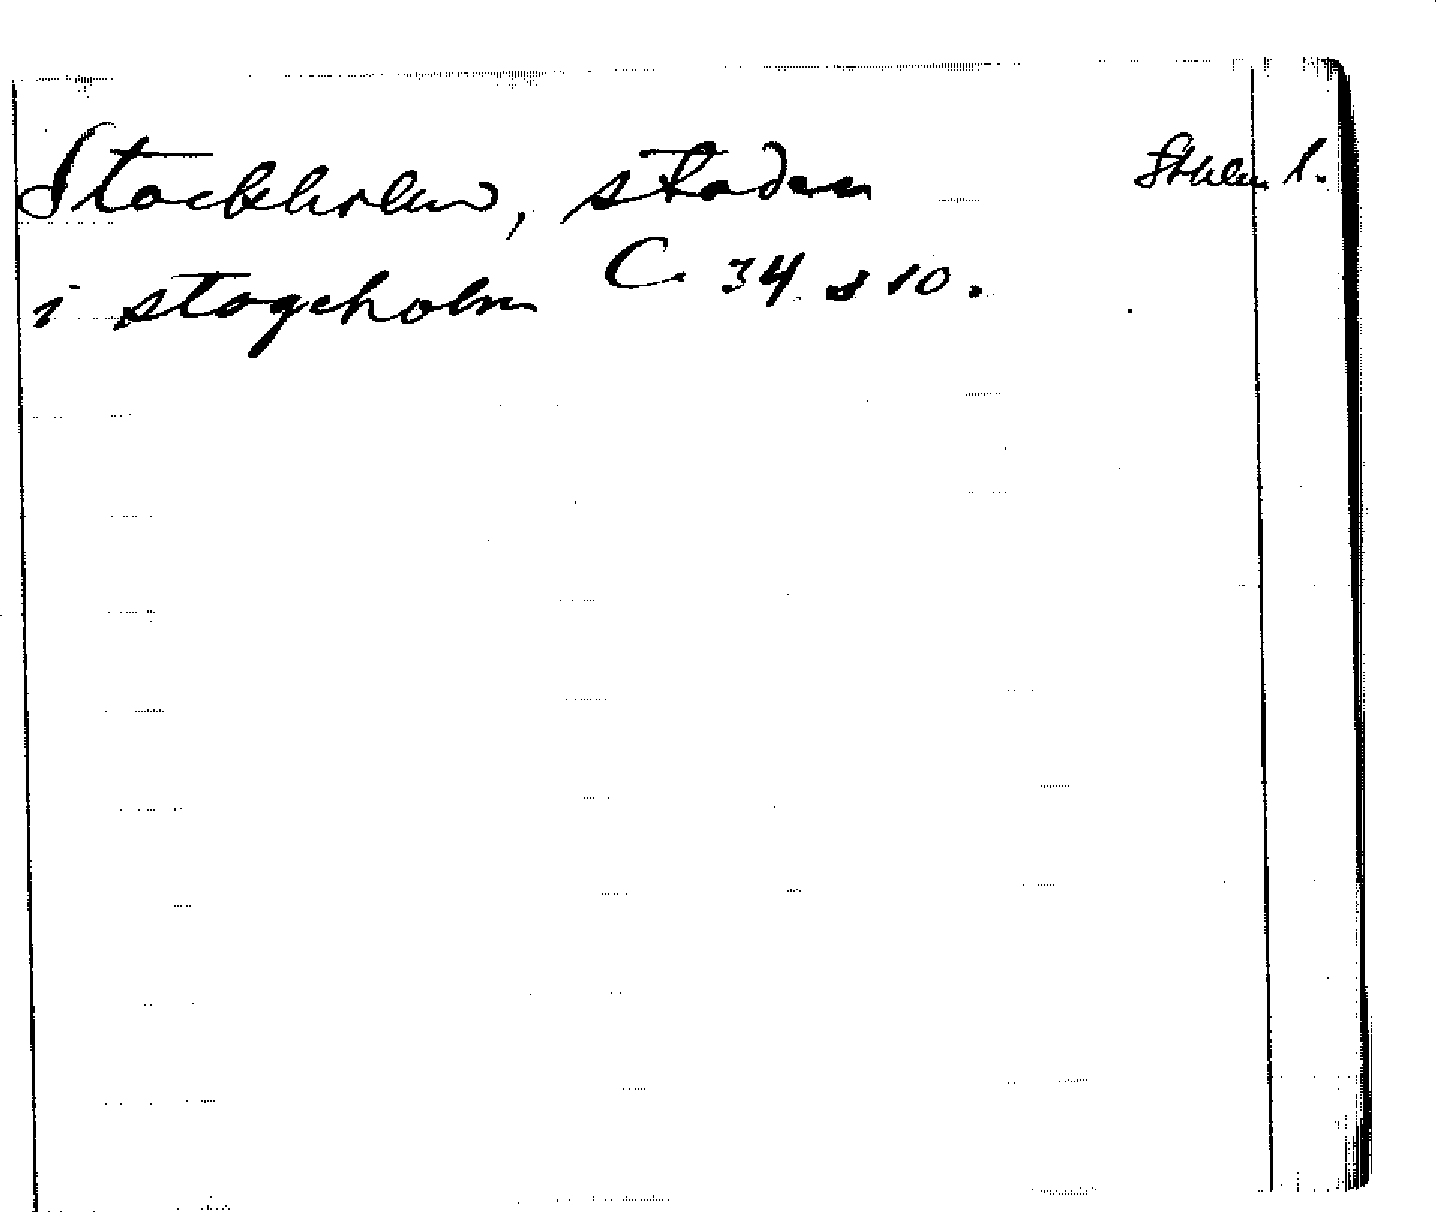 Stockholm, staden Sthlm l.
i stogeholm C 34 s 10.